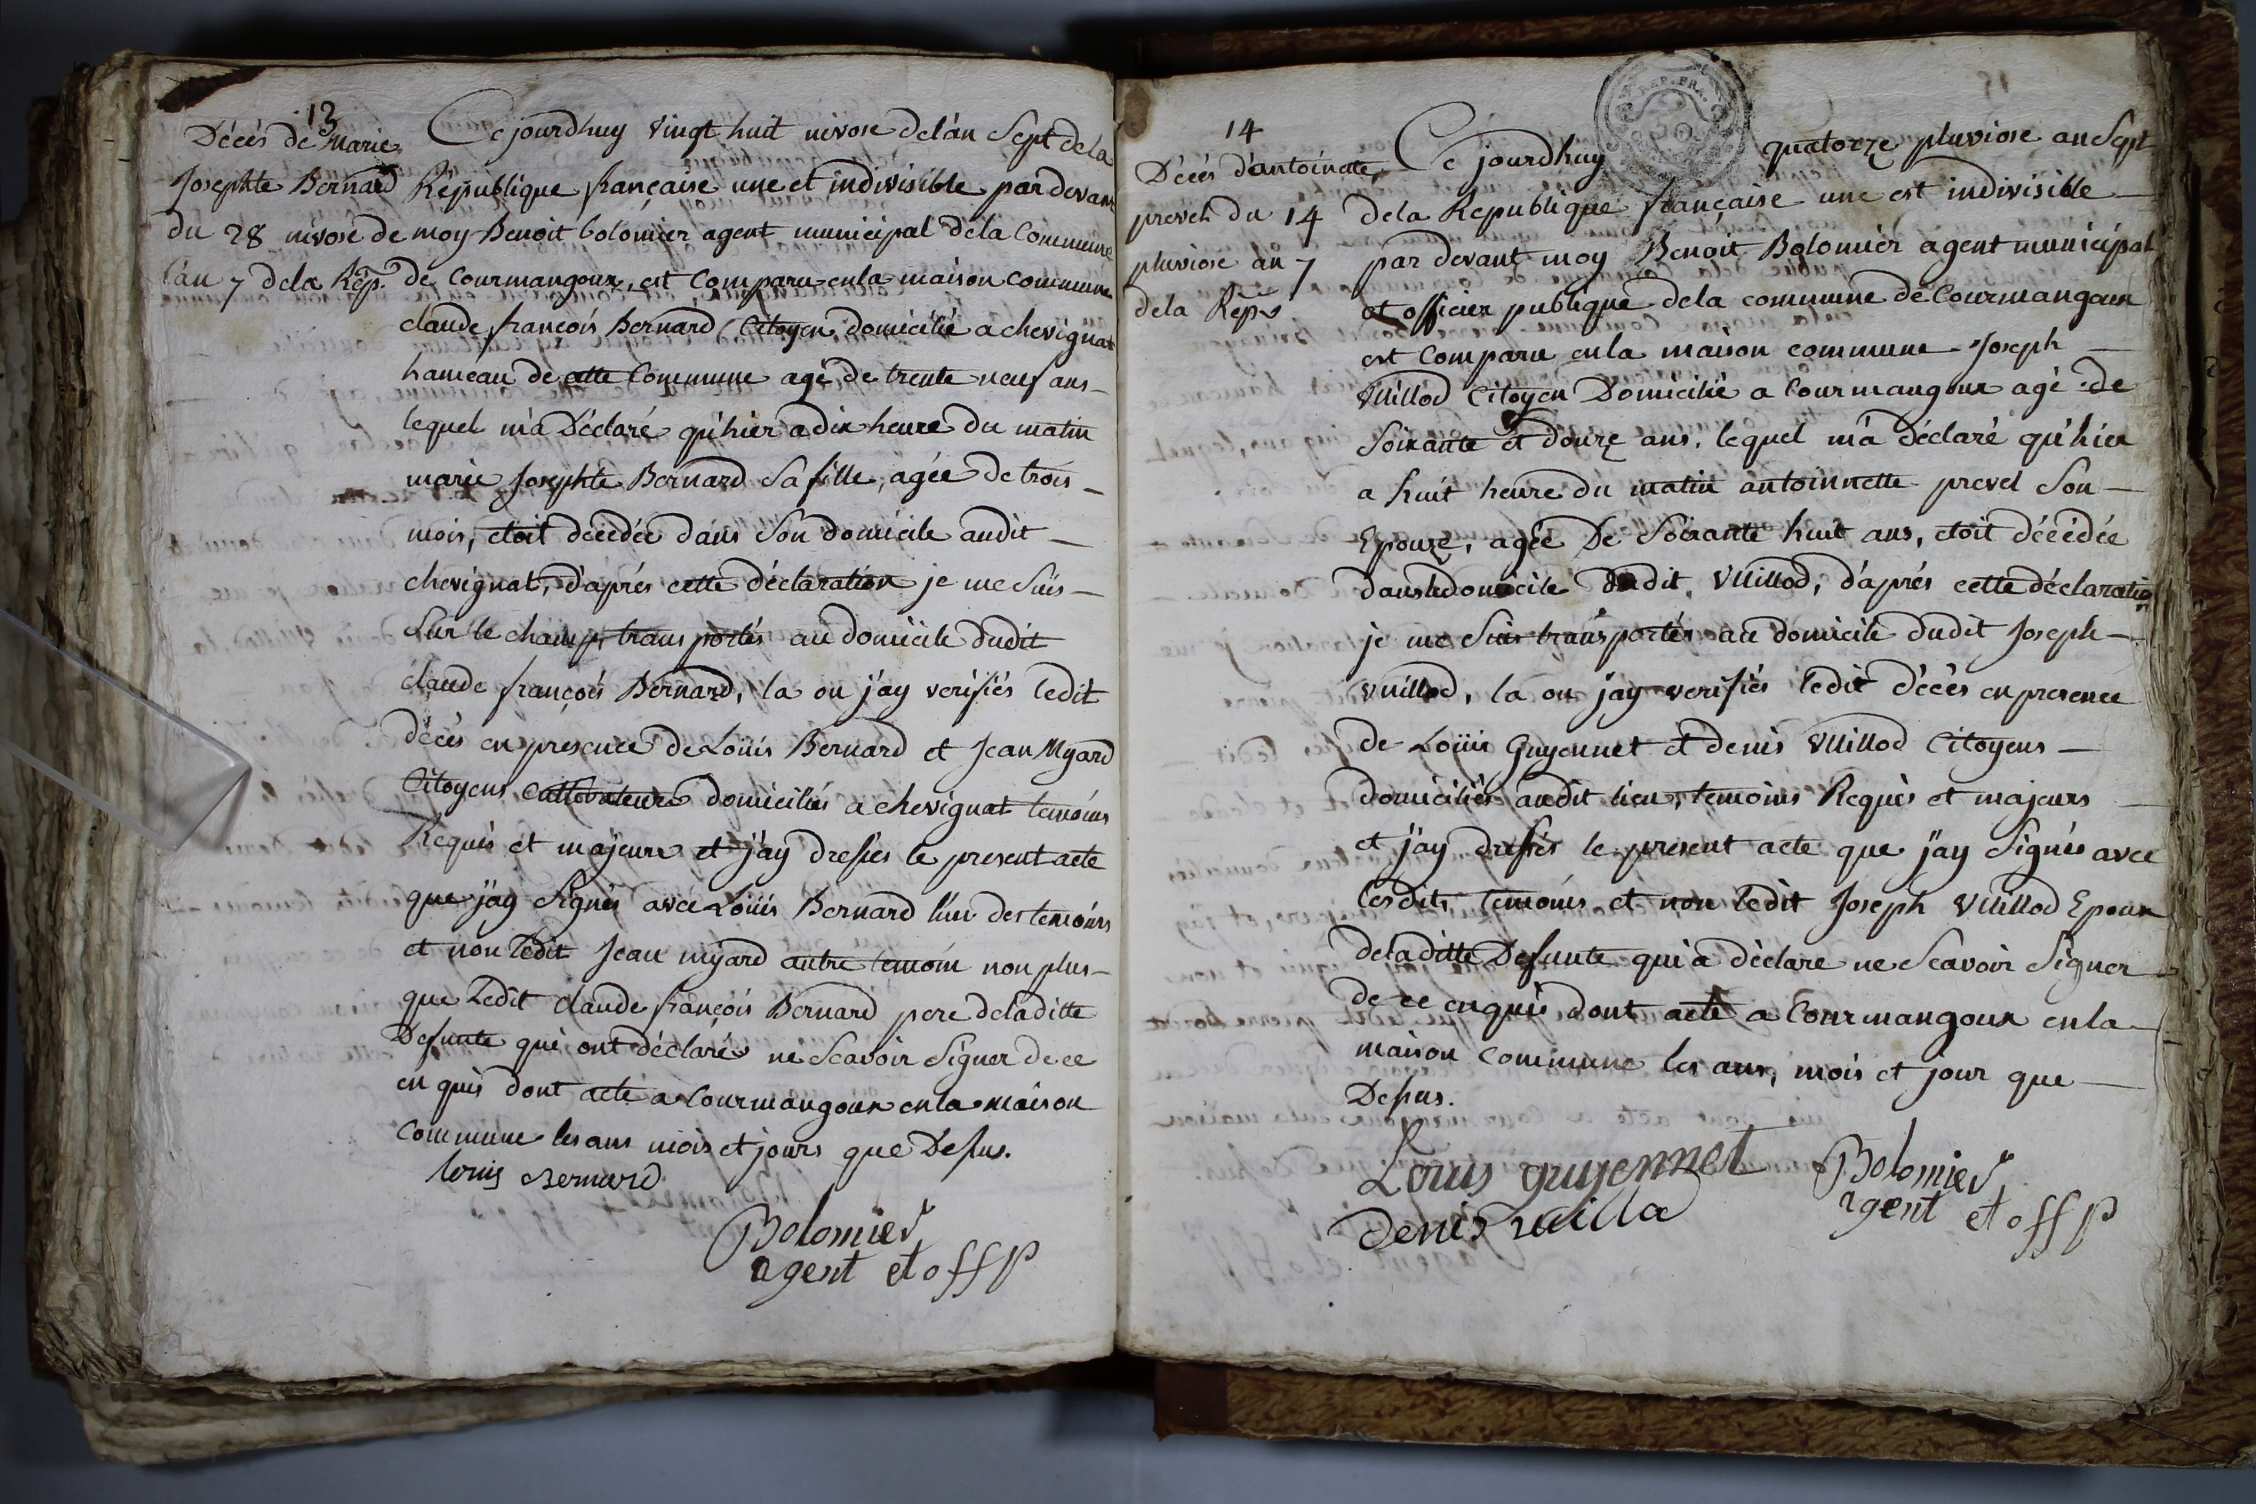 13
Décès de marie
Josephte Bernard
du 28 nivose de
l'an 7 dela Rép.
Ce jourdhuy vingt huit nivose del'an Sept dela
République française une et indivisible par devant
moy Benoit bolomier agent municipal dela Commune
de Courmangoux, est Comparu enla maison commune
claude françois Bernard Citoyen domicilié a chevignat
hameau de cette Commune agé de trente neuf ans
lequel m'a Déclaré qu'hier a dix heure du matin
marie Josephte Bernard Sa fille, agée de trois
mois, etoit décédée dans Son domicile audit
chevignat, d'aprés cette déclaration je me Suis
Sur le champ, transportés au domicile dudit
claude françois Bernard, la ou j'ay verifiés ledit
décès en presence de Loüis Bernard et Jean Myard
Citoyens Cultivateurs domiciliés a chevignat temoins
Requis et majeurs et j'ay dressés le present acte
que j'ay Signés avec Loüis Bernard l'un des temoins
et non ledit Jean myard autre temoin non plus
que ledit claude françois Bernard pere deladitte
Defunte qui ont déclarés ne Scavoir Signer de ce
en quis dont acte a Courmangoux enla maison
Commune les ans mois et jours que Dessus.
louis Bernard
Bolomier
agent et off p
14
Décés d'antoinette
prevel du 14
pluviose an 7
dela Rép
REP. FRA.
Ce jourdhuy quatorze pluviose an Sept
dela Republique française une est indivisible
par devant moy Benoit Bolomier agent municipal
et officier publique dela commune de Courmangoux
est Comparu enla maison commune Joseph
Vuillod Citoyen Domicilié a Courmangoux agé de
Soixante et douze ans, lequel m'a déclaré qu'hier
a huit heure du matin antoinnette prevel Son
Epouze, agée De Soixante huit ans, etoit décédée
dans le domicile dudit Vuillod, d'aprés cette déclaration
je me Suis transportés au domicile dudit Joseph
Vuillod, la ou j'ay verifiés ledit décès en presence
de Loüis Guyennet et denis Vuillod Citoyens
domiciliés audit lieu, temoins Requis et majeurs
et j'ay dressés le present acte que j'ay Signés avec
lesdits temoins et non ledit Joseph Vuillod Epoux
deladitte Defunte qui a déclaré ne Scavoir Signer
de ce enquis dont acte a Courmangoux enla
maison commune les ans, mois et jour que
Dessus.
Louis guyennet
Denis vuilla
Bolomier
agent et off p